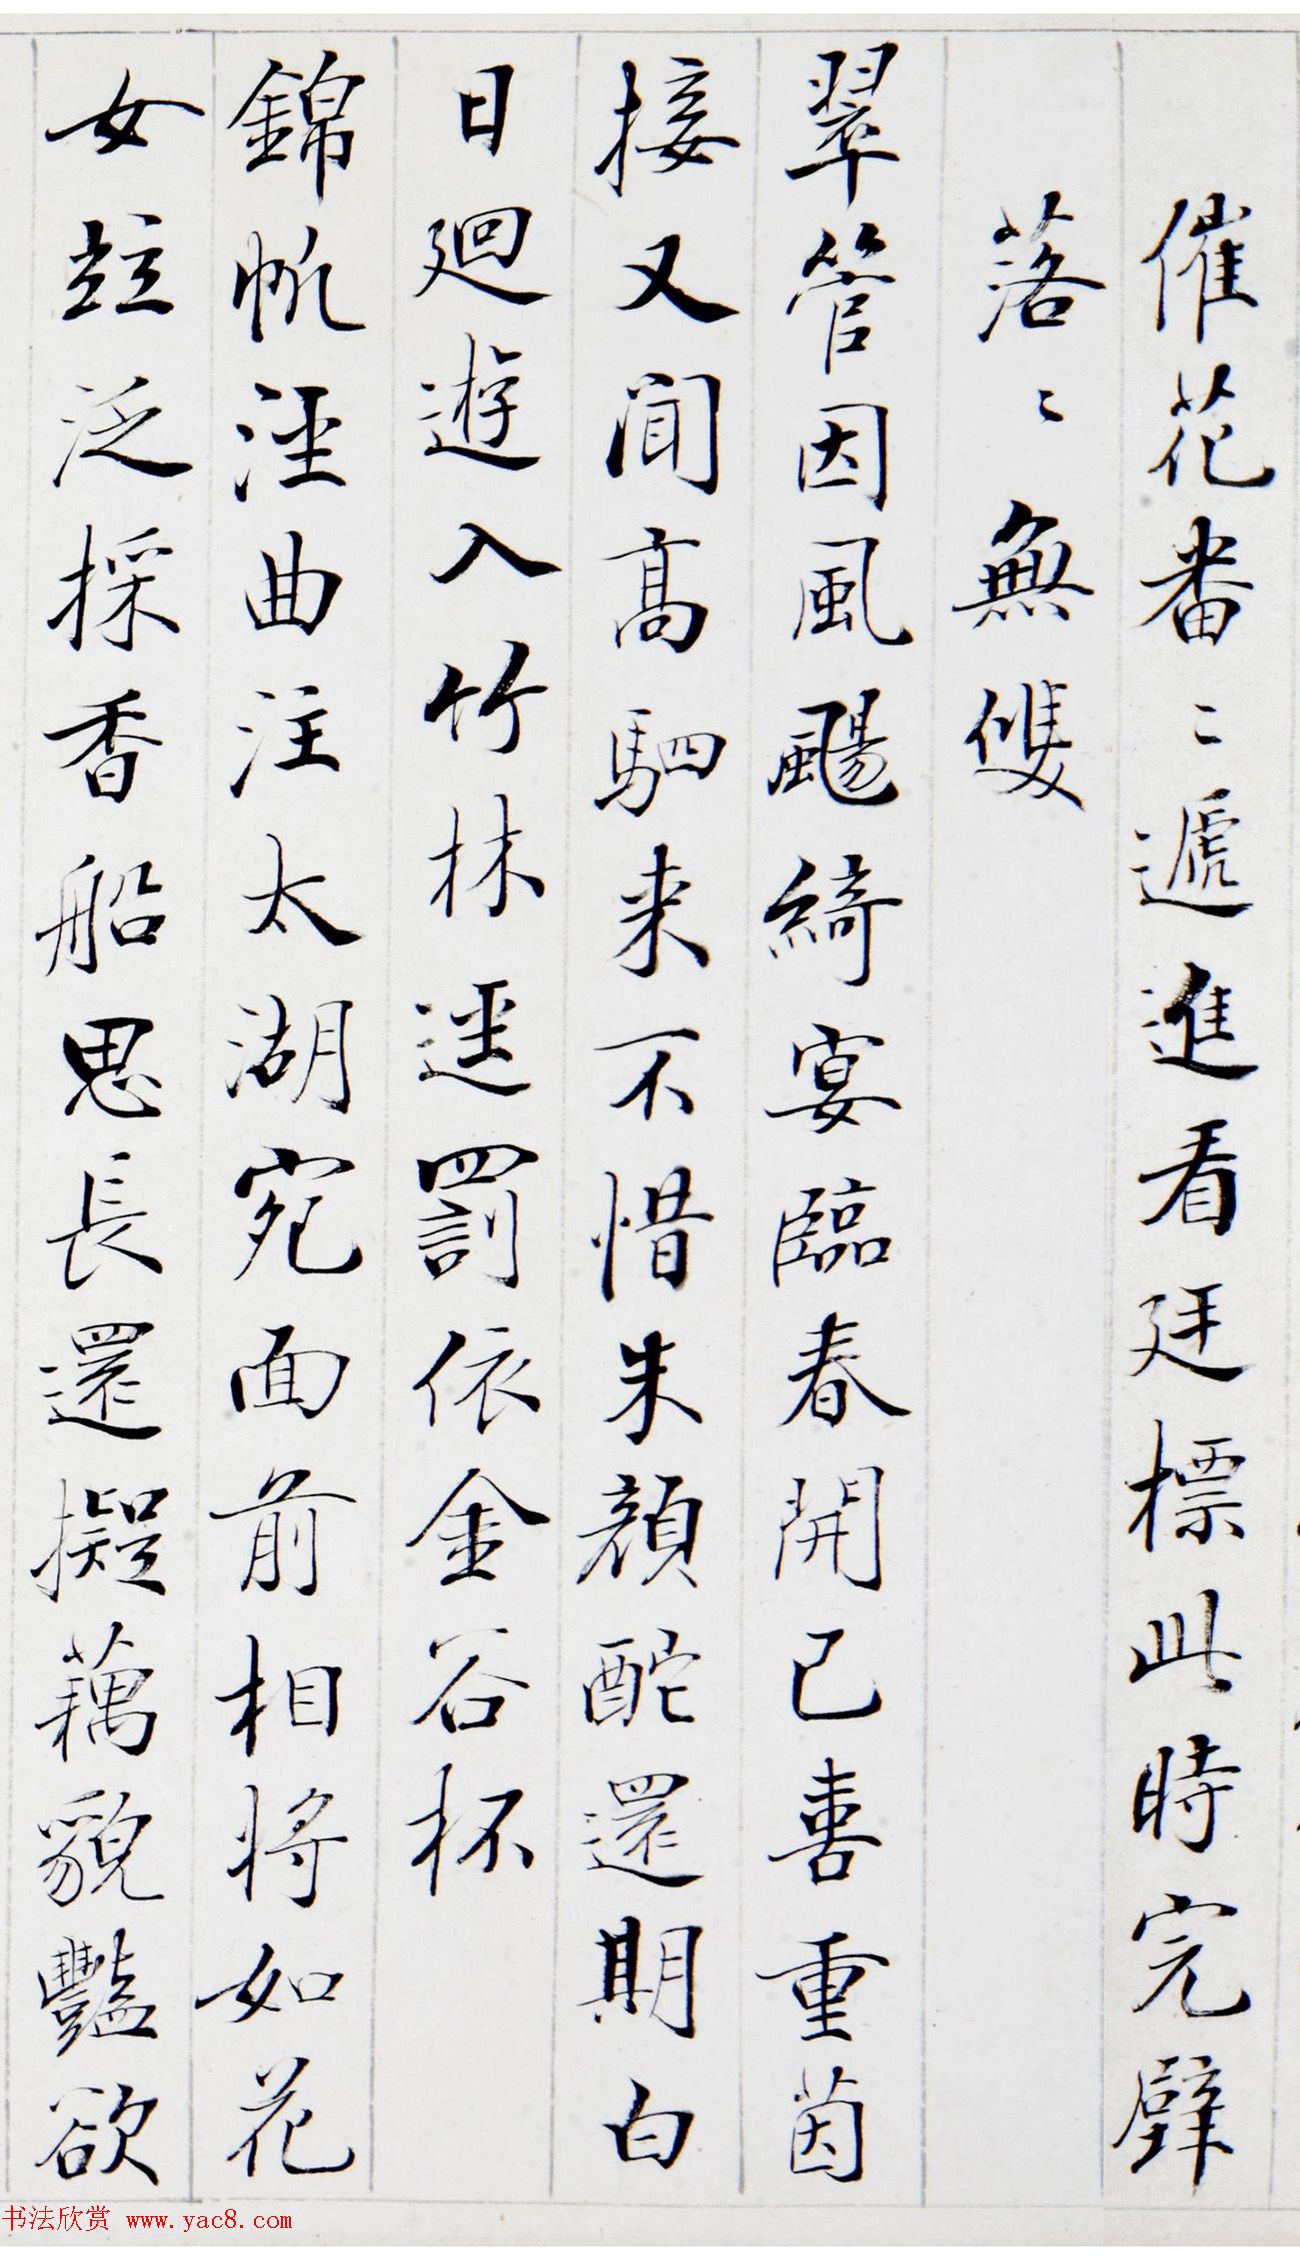 催花番〻遞進看廷標此時完璧
落〻無雙
翠管因風颺綺宴臨春開已喜重茵
接又聞高駟来不惜朱顔酡還期白
日廻遊入竹林逕罰依金谷杯
錦帆涇曲注太湖宛面前相将如花
女竝泛採香船思長還擬藕貌豔欲
书法欣赏 www.yac8.com